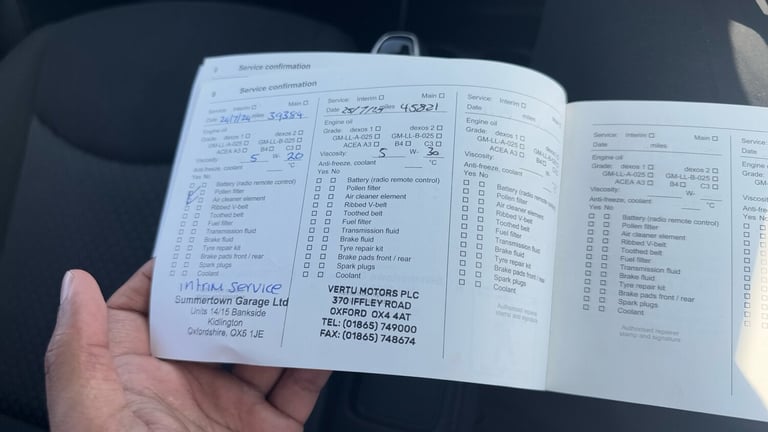 9 Service confirmation
9 Service confirmation
Service: Interim ☐ Main ☐
Date 24/7/24 miles 39384
Engine oil
Grade: dexos 1 ☐ dexos 2 ☐
GM-LL-A-025 ☐ GM-LL-B-025 ☐
ACEA A3 ☐ B4 ☐ C3 ☐
Viscosity: 5 W- 20
Anti-freeze, coolant °C
Yes No
Battery (radio remote control)
Pollen filter
Air cleaner element
Ribbed V-belt
Toothed belt
Fuel filter
Transmission fluid
Brake fluid
Tyre repair kit
Brake pads front / rear
Spark plugs
Coolant
intrim service
Summertown Garage Ltd
Units 14/15 Bankside
Kidlington
Oxfordshire, OX5 1JE
Service: Interim ☐ Main ☐
Date 25/7/25 miles 45821
Engine oil
Grade: dexos 1 ☐ dexos 2 ☐
GM-LL-A-025 ☐ GM-LL-B-025 ☐
ACEA A3 ☐ B4 ☐ C3 ☐
Viscosity: 5 W- 30
Anti-freeze, coolant °C
Yes No
Battery (radio remote control)
Pollen filter
Air cleaner element
Ribbed V-belt
Toothed belt
Fuel filter
Transmission fluid
Brake fluid
Tyre repair kit
Brake pads front / rear
Spark plugs
Coolant
VERTU MOTORS PLC
370 IFFLEY ROAD
OXFORD OX4 4AT
TEL: (01865) 749000
FAX: (01865) 748674
Service: Interim ☐
Date miles
Engine oil
Grade: dexos 1 ☐
GM-LL-A-025 ☐
ACEA A3 ☐ B4
Viscosity:
Anti-freeze, coolant
Yes No
Battery (radio remote
Pollen filter
Air cleaner element
Ribbed V-belt
Toothed belt
Fuel filter
Transmission fluid
Brake fluid
Tyre repair kit
Brake pads front / rear
Spark plugs
Coolant
Authorised repairer
stamp and signature
Service: Interim ☐ Main ☐
Date miles
Engine oil
Grade: dexos 1 ☐ dexos 2 ☐
GM-LL-A-025 ☐ GM-LL-B-025 ☐
ACEA A3 ☐ B4 ☐ C3 ☐
Viscosity: W-
Anti-freeze, coolant °C
Yes No
Battery (radio remote control)
Pollen filter
Air cleaner element
Ribbed V-belt
Toothed belt
Fuel filter
Transmission fluid
Brake fluid
Tyre repair kit
Brake pads front / rear
Spark plugs
Coolant
Authorised repairer
stamp and signature
Service
Date
Engine
Grade:
Yes